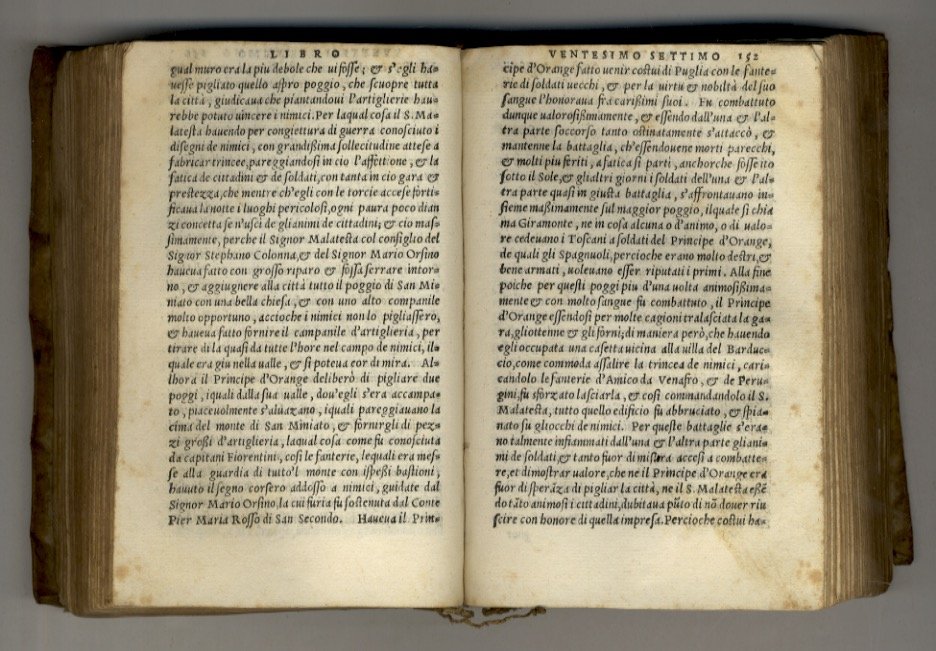 LIBRO
qual muro era la piu debole che ui fosse; & s'egli ha-
uesse pigliato quello aspro poggio, che scuopre tutta
la città, giudicaua che piantandoui l'artiglierie hau-
rebbe potuto uincere i nimici. Per laqual cosa il S. Ma-
latesta hauendo per congiettura di guerra conosciuto i
disegni de nimici, con grandißima sollecitudine attese a
fabricar trincee, pareggiandosi in cio l'affettione, & la
fatica de cittadini & de soldati, con tanta in cio gara &
prestezza, che mentre ch'egli con le torcie accese forti-
ficaua la notte i luoghi pericolosi, ogni paura poco dian
zi concetta se n'usci de gli animi de cittadini; & cio mas-
simamente, perche il Signor Malatesta col consiglio del
Signor Stephano Colonna, & del Signor Mario Orsino
haueua fatto con grosso riparo & fossa serrare intor-
no, & aggiugnere alla città tutto il poggio di San Mi-
niato con una bella chiesa, & con uno alto campanile
molto opportuno, accioche i nimici non lo pigliassero,
& haueua fatto fornire il campanile d'artiglieria, per
tirare di la quasi da tutte l'hore nel campo de nimici, il-
quale era giu nella ualle, & si poteua eor di mira. Al-
lhora il Principe d'Orange deliberò di pigliare due
poggi, iquali dalla sua ualle, dou'egli s'era accampa-
to, piaceuolmente s'alzauano, iquali pareggiauano la
cima del monte di San Miniato, & fornirgli di pez-
zi großi d'artiglieria, laqual cosa come fu conosciuta
da capitani Fiorentini, cosi le fanterie, lequali era mes-
se alla guardia di tutto'l monte con ispeßi bastioni,
hauuto il segno corsero addosso a nimici, guidate dal
Signor Mario Orsino, la cui furia fu sostenuta dal Conte
Pier Maria Rosso di San Secondo. Haueua il Prin-
VENTESIMO SETTIMO 152
cipe d'Orange fatto uenir costui di Puglia con le fante-
rie di soldati uecchi, & per la uirtu & nobiltà del suo
sangue l'honoraua fra carißimi suoi. Fu combattuto
dunque ualorosißimamente, & essendo dall'una & l'al-
tra parte soccorso tanto ostinatamente s'attaccò, &
mantenne la battaglia, ch'essendouene morti parecchi,
& molti piu feriti, a fatica si partì, anchorche fosse ito
sotto il Sole, & gli altri giorni i soldati dell'una & l'al-
tra parte quasi in giusta battaglia, s'affrontauano in-
sieme maßimamente sul maggior poggio, ilquale si chia
ma Giramonte, ne in cosa alcuna o d'animo, o di ualo-
re cedeuano i Toscani a soldati del Principe d'Orange,
de quali gli Spagnuoli, percioche erano molto destri, &
bene armati, uoleuano esser riputati i primi. Alla fine
poiche per questi poggi piu d'una uolta animosißima-
mente & con molto sangue fu combattuto, il Principe
d'Orange essendosi per molte cagioni tralasciata la ga-
ra, gli ottenne & gli fornì; di maniera però, che hauendo
egli occupata una casetta uicina alla uilla del Barduc-
cio, come commoda assalire la trincea de nimici, cari-
candolo le fanterie d'Amico da Venafro, & de Peru-
gini, fu sforzato lasciarla, & cosi commandandolo il S.
Malatesta, tutto quello edificio fu abbruciato, & spia-
nato su gliocchi de nimici. Per queste battaglie s'era-
no talmente infiammati dall'una & l'altra parte gliani-
mi de soldati, & tanto fuor di misura accesi a combatte-
re, et dimostrar ualore, che ne il Principe d'Orange era
fuor di sperãza di pigliar la città, ne il S. Malatesta eßẽ
do tãto animosi i cittadini, dubitaua pũto di nõ douer riu
scire con honore di quella impresa. Percioche costui ha-